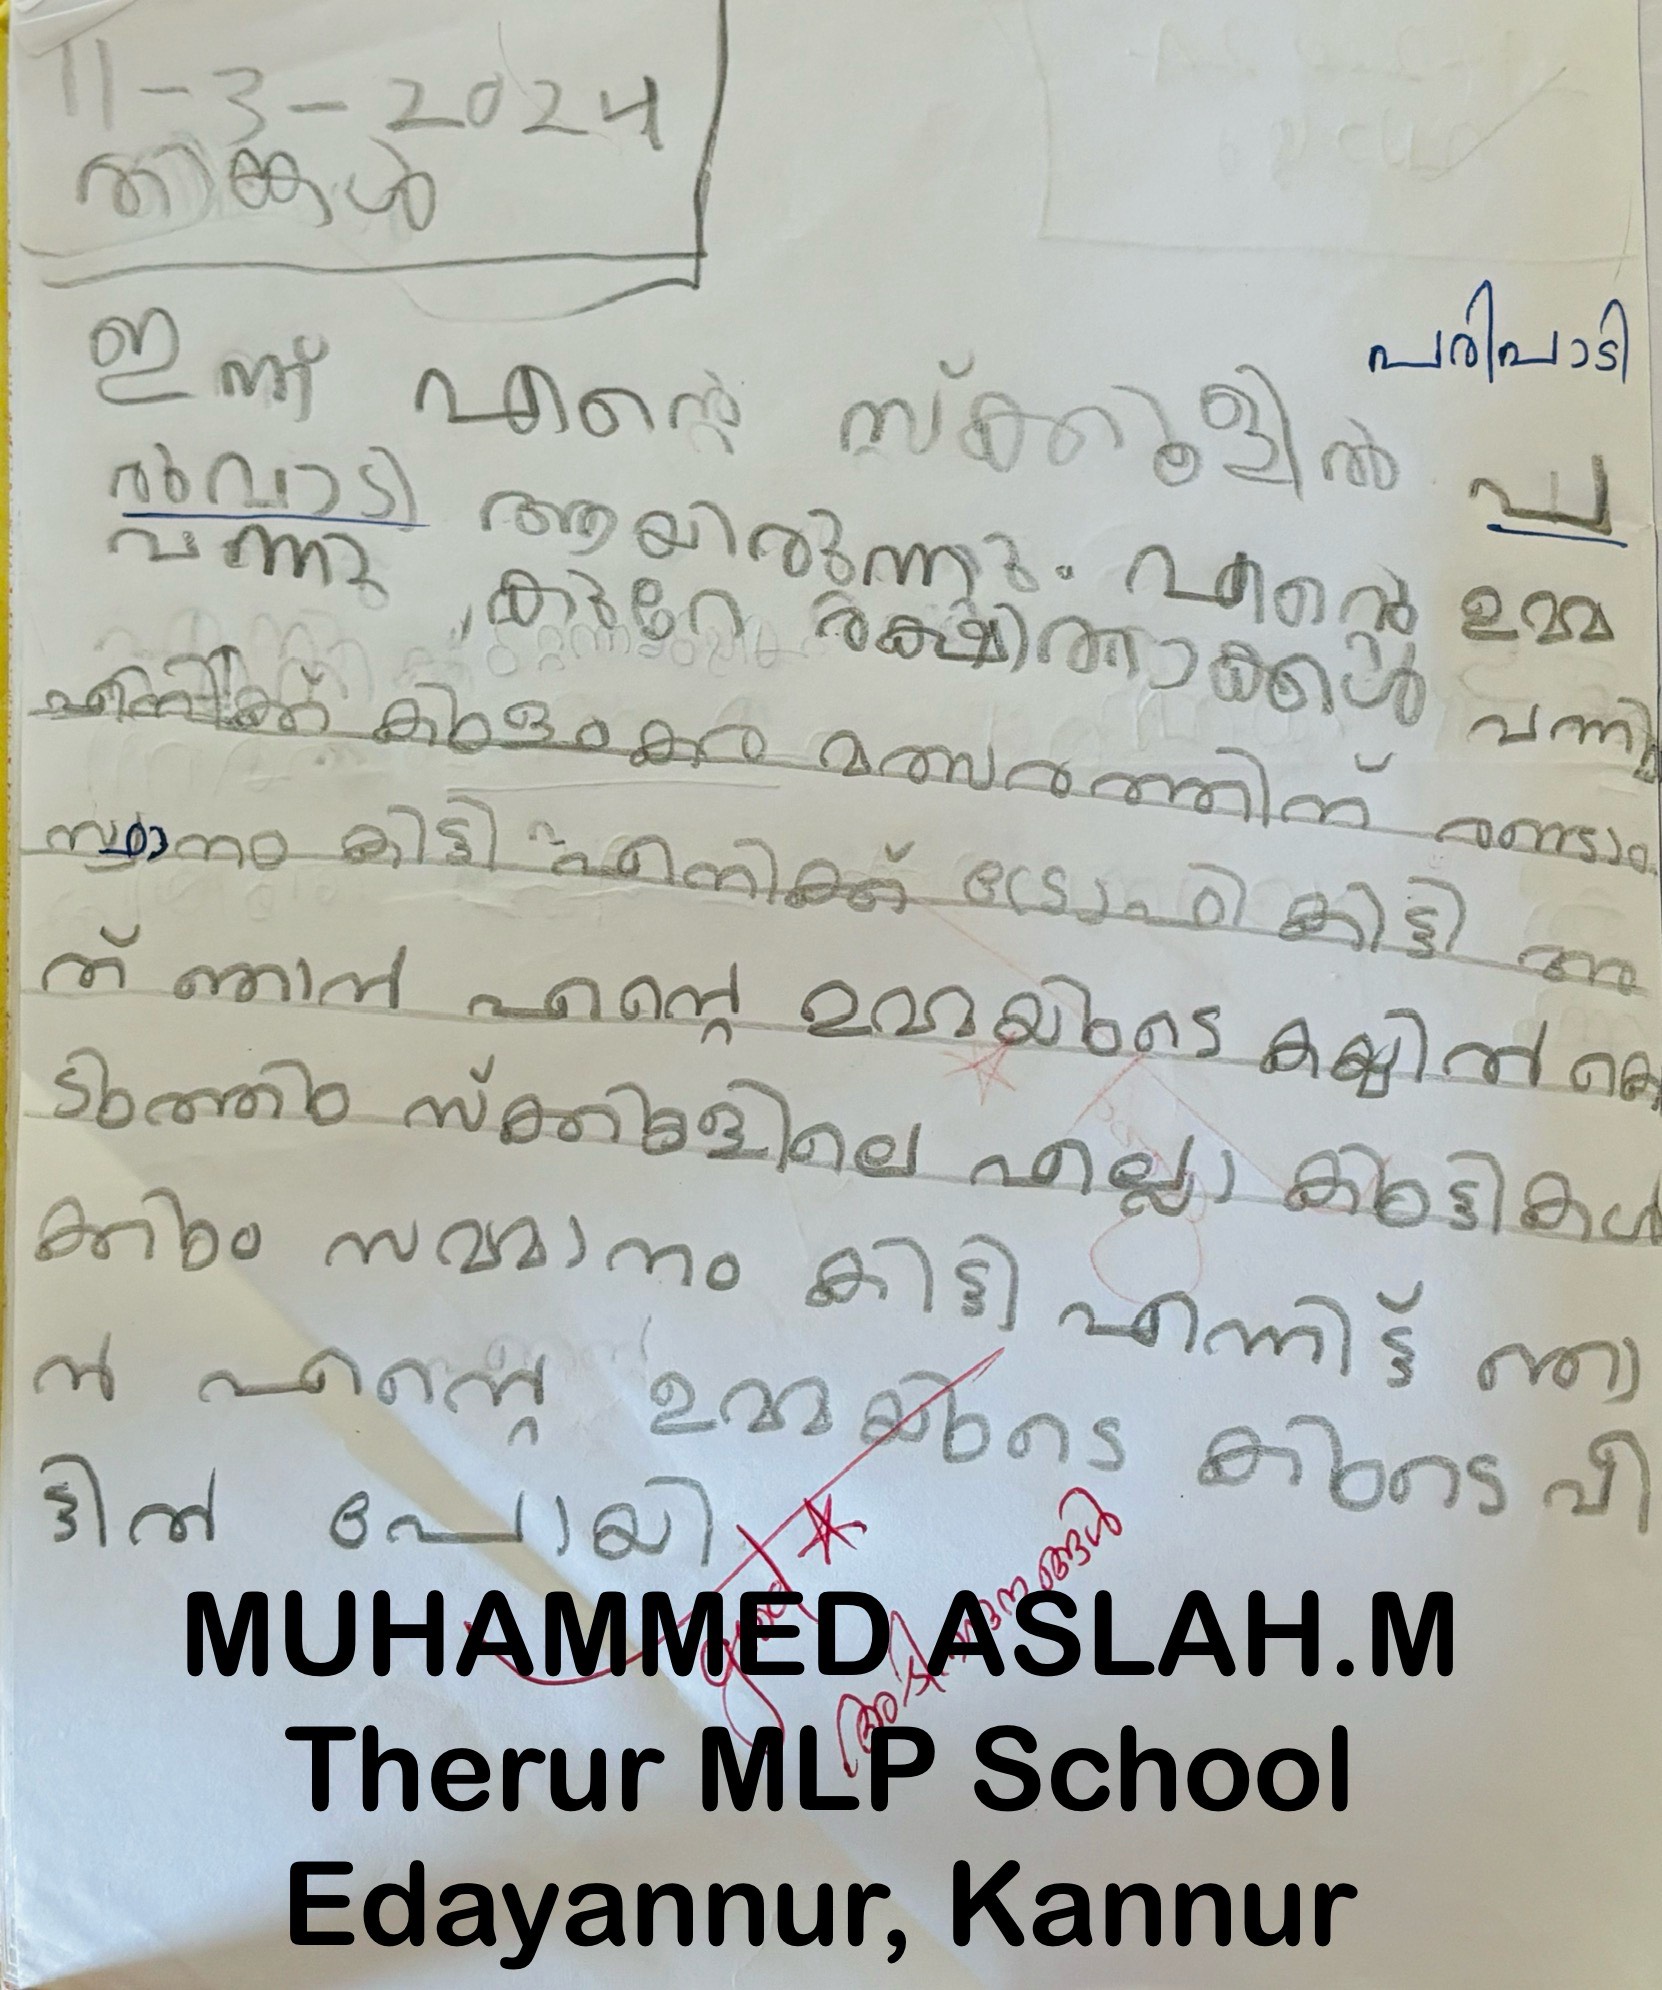 11-3-2024
തിങ്കൾ
പരിപാടി
ഇന്ന് എന്റെ സ്ക്കുളിൽ പ
ർവാടി ആയിരുന്നു. എന്റെ ഉമ്മ
വന്നു കുറേ രക്ഷിതാക്കൾ വന്നു
എനിക്ക് കളറിംഗ് മത്സരത്തിന് രണ്ടാം
സ്ഥാനം കിട്ടി എനിക്ക് ട്രോഫി കിട്ടി അ
ത് ഞാൻ എന്റെ ഉമ്മയുടെ കയ്യിൽ കൊ
ടുത്തു സ്ക്കുളിലെ എല്ലാ കുട്ടികൾ
ക്കും സമ്മാനം കിട്ടി എന്നിട്ട് ഞാ
ൻ എന്റെ ഉമ്മയുടെ കുടെ വീ
ട്ടിൽ പോയി
good
അഭിനന്ദനങ്ങൾ
MUHAMMED ASLAH.M
Therur MLP School
Edayannur, Kannur